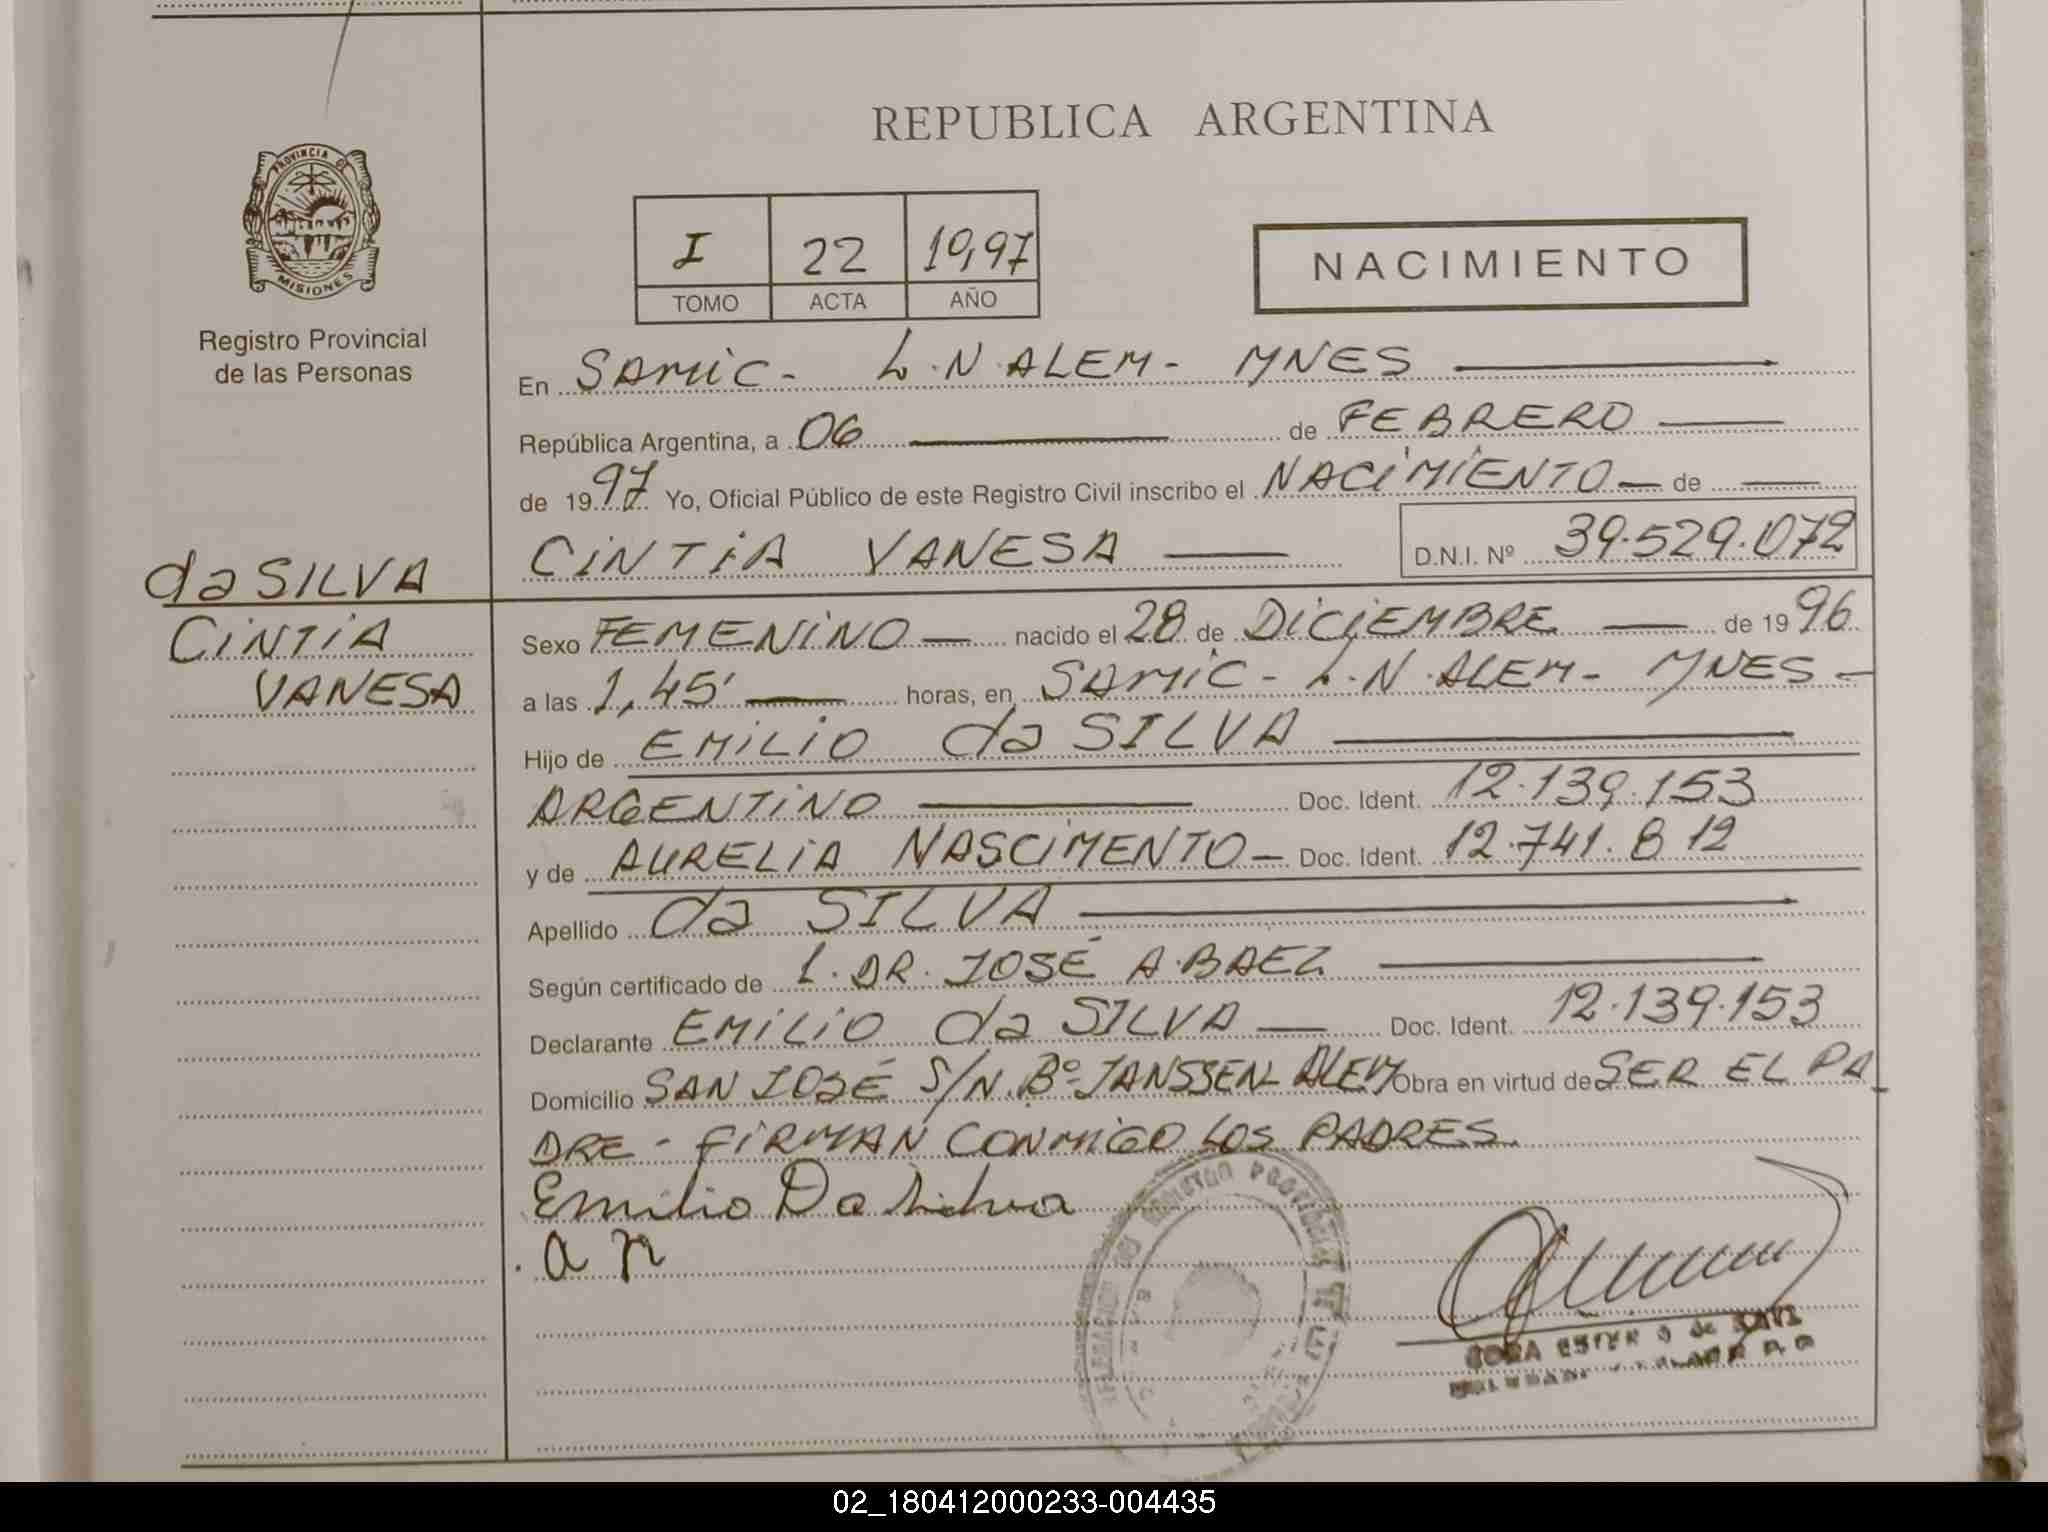 REPUBLICA ARGENTINA
PROVINCIA DE
MISIONES
Registro Provincial
de las Personas
I 22 19,97
TOMO ACTA AÑO
NACIMIENTO
En SAMIC - L.N.ALEM - MNES
República Argentina, a 06 de FEBRERO
de 1997 Yo, Oficial Público de este Registro Civil inscribo el NACIMIENTO de
CINTIA VANESA D.N.I. Nº 39.529.072
da SILVA
CINTIA
VANESA
Sexo FEMENINO nacido el 28 de DICIEMBRE de 1996
a las 1,45' horas, en SAMIC - L.N.ALEM - MNES -
Hijo de EMILIO da SILVA
ARGENTINO Doc. Ident. 12.139.153
y de AURELIA NASCIMENTO - Doc. Ident. 12.741.812
Apellido da SILVA
Según certificado de 1. DR. JOSÉ A. BAEZ
Declarante EMILIO da SILVA Doc. Ident. 12.139.153
Domicilio SAN JOSÉ S/N. Bº JANSSEN - ALEM Obra en virtud de SER EL PA_
DRE - FIRMAN CONMIGO LOS PADRES.
Emilio Da Silva
a n
02_180412000233-004435